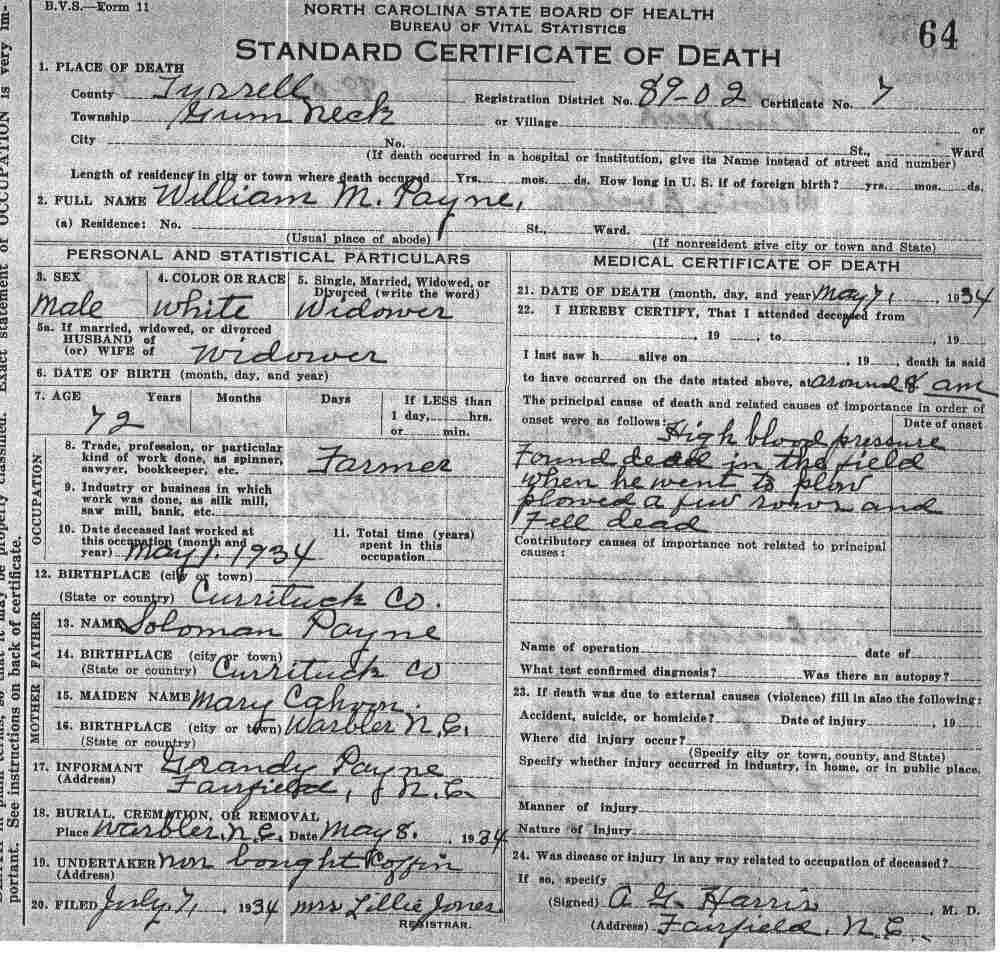 B.V.S.—Form 11
NORTH CAROLINA STATE BOARD OF HEALTH
BUREAU OF VITAL STATISTICS
STANDARD CERTIFICATE OF DEATH
64
1. PLACE OF DEATH
County Tyrrell Registration District No. 89-02 Certificate No. 7
Township Gum Neck or Village or
City No. St., Ward
(If death occurred in a hospital or institution, give its Name instead of street and number)
Length of residency in city or town where death occurred Yrs. mos. ds. How long in U. S. if of foreign birth? yrs. mos. ds.
2. FULL NAME William M. Payne,
(a) Residence: No. St., Ward.
(Usual place of abode) (If nonresident give city or town and State)
PERSONAL AND STATISTICAL PARTICULARS
3. SEX 4. COLOR OR RACE 5. Single, Married, Widowed, or
Divorced (write the word)
Male White Widower
5a. If married, widowed, or divorced
HUSBAND of
(or) WIFE of Widower
6. DATE OF BIRTH (month, day, and year)
7. AGE Years Months Days If LESS than
1 day, hrs.
72 or min.
OCCUPATION
8. Trade, profession, or particular
kind of work done, as spinner,
sawyer, bookkeeper, etc. Farmer
9. Industry or business in which
work was done, as silk mill,
saw mill, bank, etc.
10. Date deceased last worked at
this occupation (month and
year) May 1. 1934
11. Total time (years)
spent in this
occupation
12. BIRTHPLACE (city or town)
(State or country) Currituck Co.
FATHER
13. NAME Soloman Payne
14. BIRTHPLACE (city or town)
(State or country) Currituck Co
MOTHER
15. MAIDEN NAME Mary Cahoon.
16. BIRTHPLACE (city or town) Warbler N.C.
(State or country)
17. INFORMANT Grandy Payne
(Address) Fairfield, N.C.
18. BURIAL, CREMATION, OR REMOVAL
Place Warbler, N.C. Date May 8. 1934
19. UNDERTAKER non bought Coffin
(Address)
20. FILED July 7, 1934 Mrs Lillie Jones
REGISTRAR.
MEDICAL CERTIFICATE OF DEATH
21. DATE OF DEATH (month, day, and year) May 7, 1934
22. I HEREBY CERTIFY, That I attended deceased from
, 19 , to , 19
I last saw h alive on , 19 , death is said
to have occurred on the date stated above, at around 8 am
The principal cause of death and related causes of importance in order of
onset were as follows: Date of onset
High blood pressure
Found dead in the field
when he went to plow
plowed a few rows and
Fell dead
Contributory causes of importance not related to principal
causes:
Name of operation date of
What test confirmed diagnosis? Was there an autopsy?
23. If death was due to external causes (violence) fill in also the following:
Accident, suicide, or homicide? Date of injury , 19
Where did injury occur?
(Specify city or town, county, and State)
Specify whether injury occurred in industry, in home, or in public place.
Manner of injury
Nature of injury
24. Was disease or injury in any way related to occupation of deceased?
If so, specify
(Signed) A G. Harris , M. D.
(Address) Fairfield, N.C.
portant. See instructions on back of certificate.
Exact statement of OCCUPATION is very im-